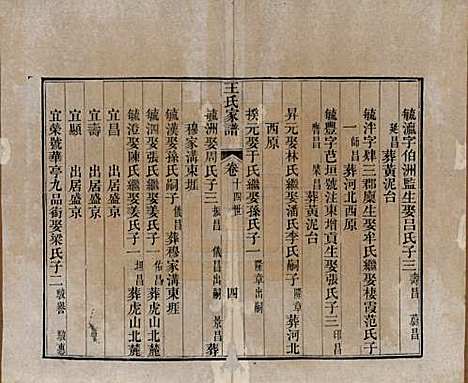 毓瀛字伯洲監生娶呂氏子三 壽昌 蔚昌
延昌 葬黃泥台
毓泮字肆三郡廩生娶牟氏繼娶棲霞范氏子
一 師昌 葬河北西原
毓豐字芑垣號注東增貢生娶張氏子三 印昌
魯昌 榮昌 葬黃泥台
昇元娶林氏繼娶潘氏李氏嗣子 葬河北
西原
揆元娶于氏繼娶孫氏子一 隆章出嗣
王氏家譜
卷 十四世
四
毓洲娶周氏子三 振昌 儀昌出嗣 景昌 葬
穆家溝東堐
毓漢娶孫氏嗣子 儀昌 葬穆家溝東堐
毓泗娶張氏繼娶姜氏子一 佑昌 葬虎山北麓
毓澄娶陳氏繼娶姜氏子一 坦昌 葬虎山北麓
宜昌 出居盛京
宜壽 出居盛京
宜顯 出居盛京
宜榮號華亭九品銜娶梁氏子二 駿譽 駿惠